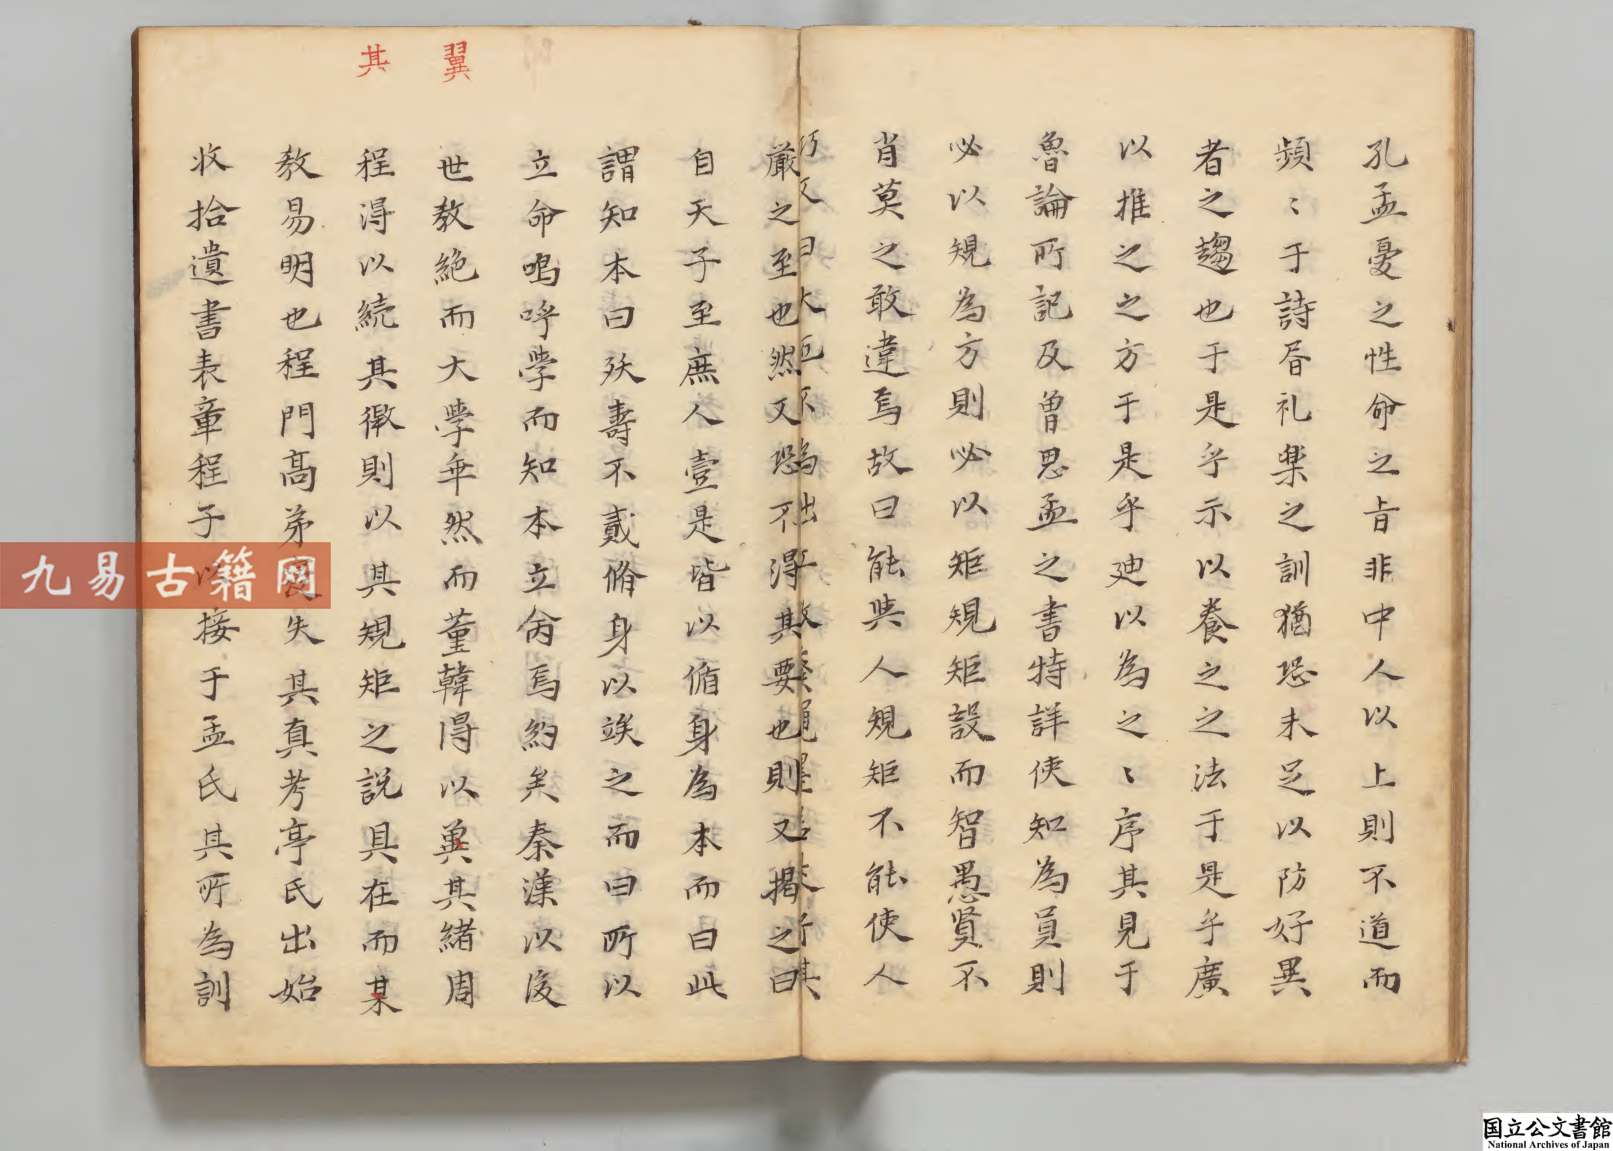 孔孟憂之性命之旨非中人以上則不道而
頻〻于詩昏礼楽之訓猶恐未足以防好異
者之趨也于是乎示以養之之法于是乎廣
以推之之方于是乎廸以為之〻序其見于
魯論所記及曽思孟之書特詳使知為員則
必以規為方則必以矩規矩設而智愚賢不
肖莫之敢違焉故曰能与人規矩不能使人
厳之至也然又恐不得其要也則又揭之曰
自天子至庶人壹是皆以脩身為本而曰此
謂知本曰殀壽不貳脩身以竢之而曰所以
立命嗚呼學而知本立命焉約矣秦漢以後
世教絶而大學乖然而董韓得以冀其緒周
程得以続其徽則以其規矩之説具在而某
教易明也程門高弟失其真考亭氏出始
收拾遺書表章程子以接于孟氏其所為訓
翼
其
九易古籍网
国立公文書館
National Archives of Japan